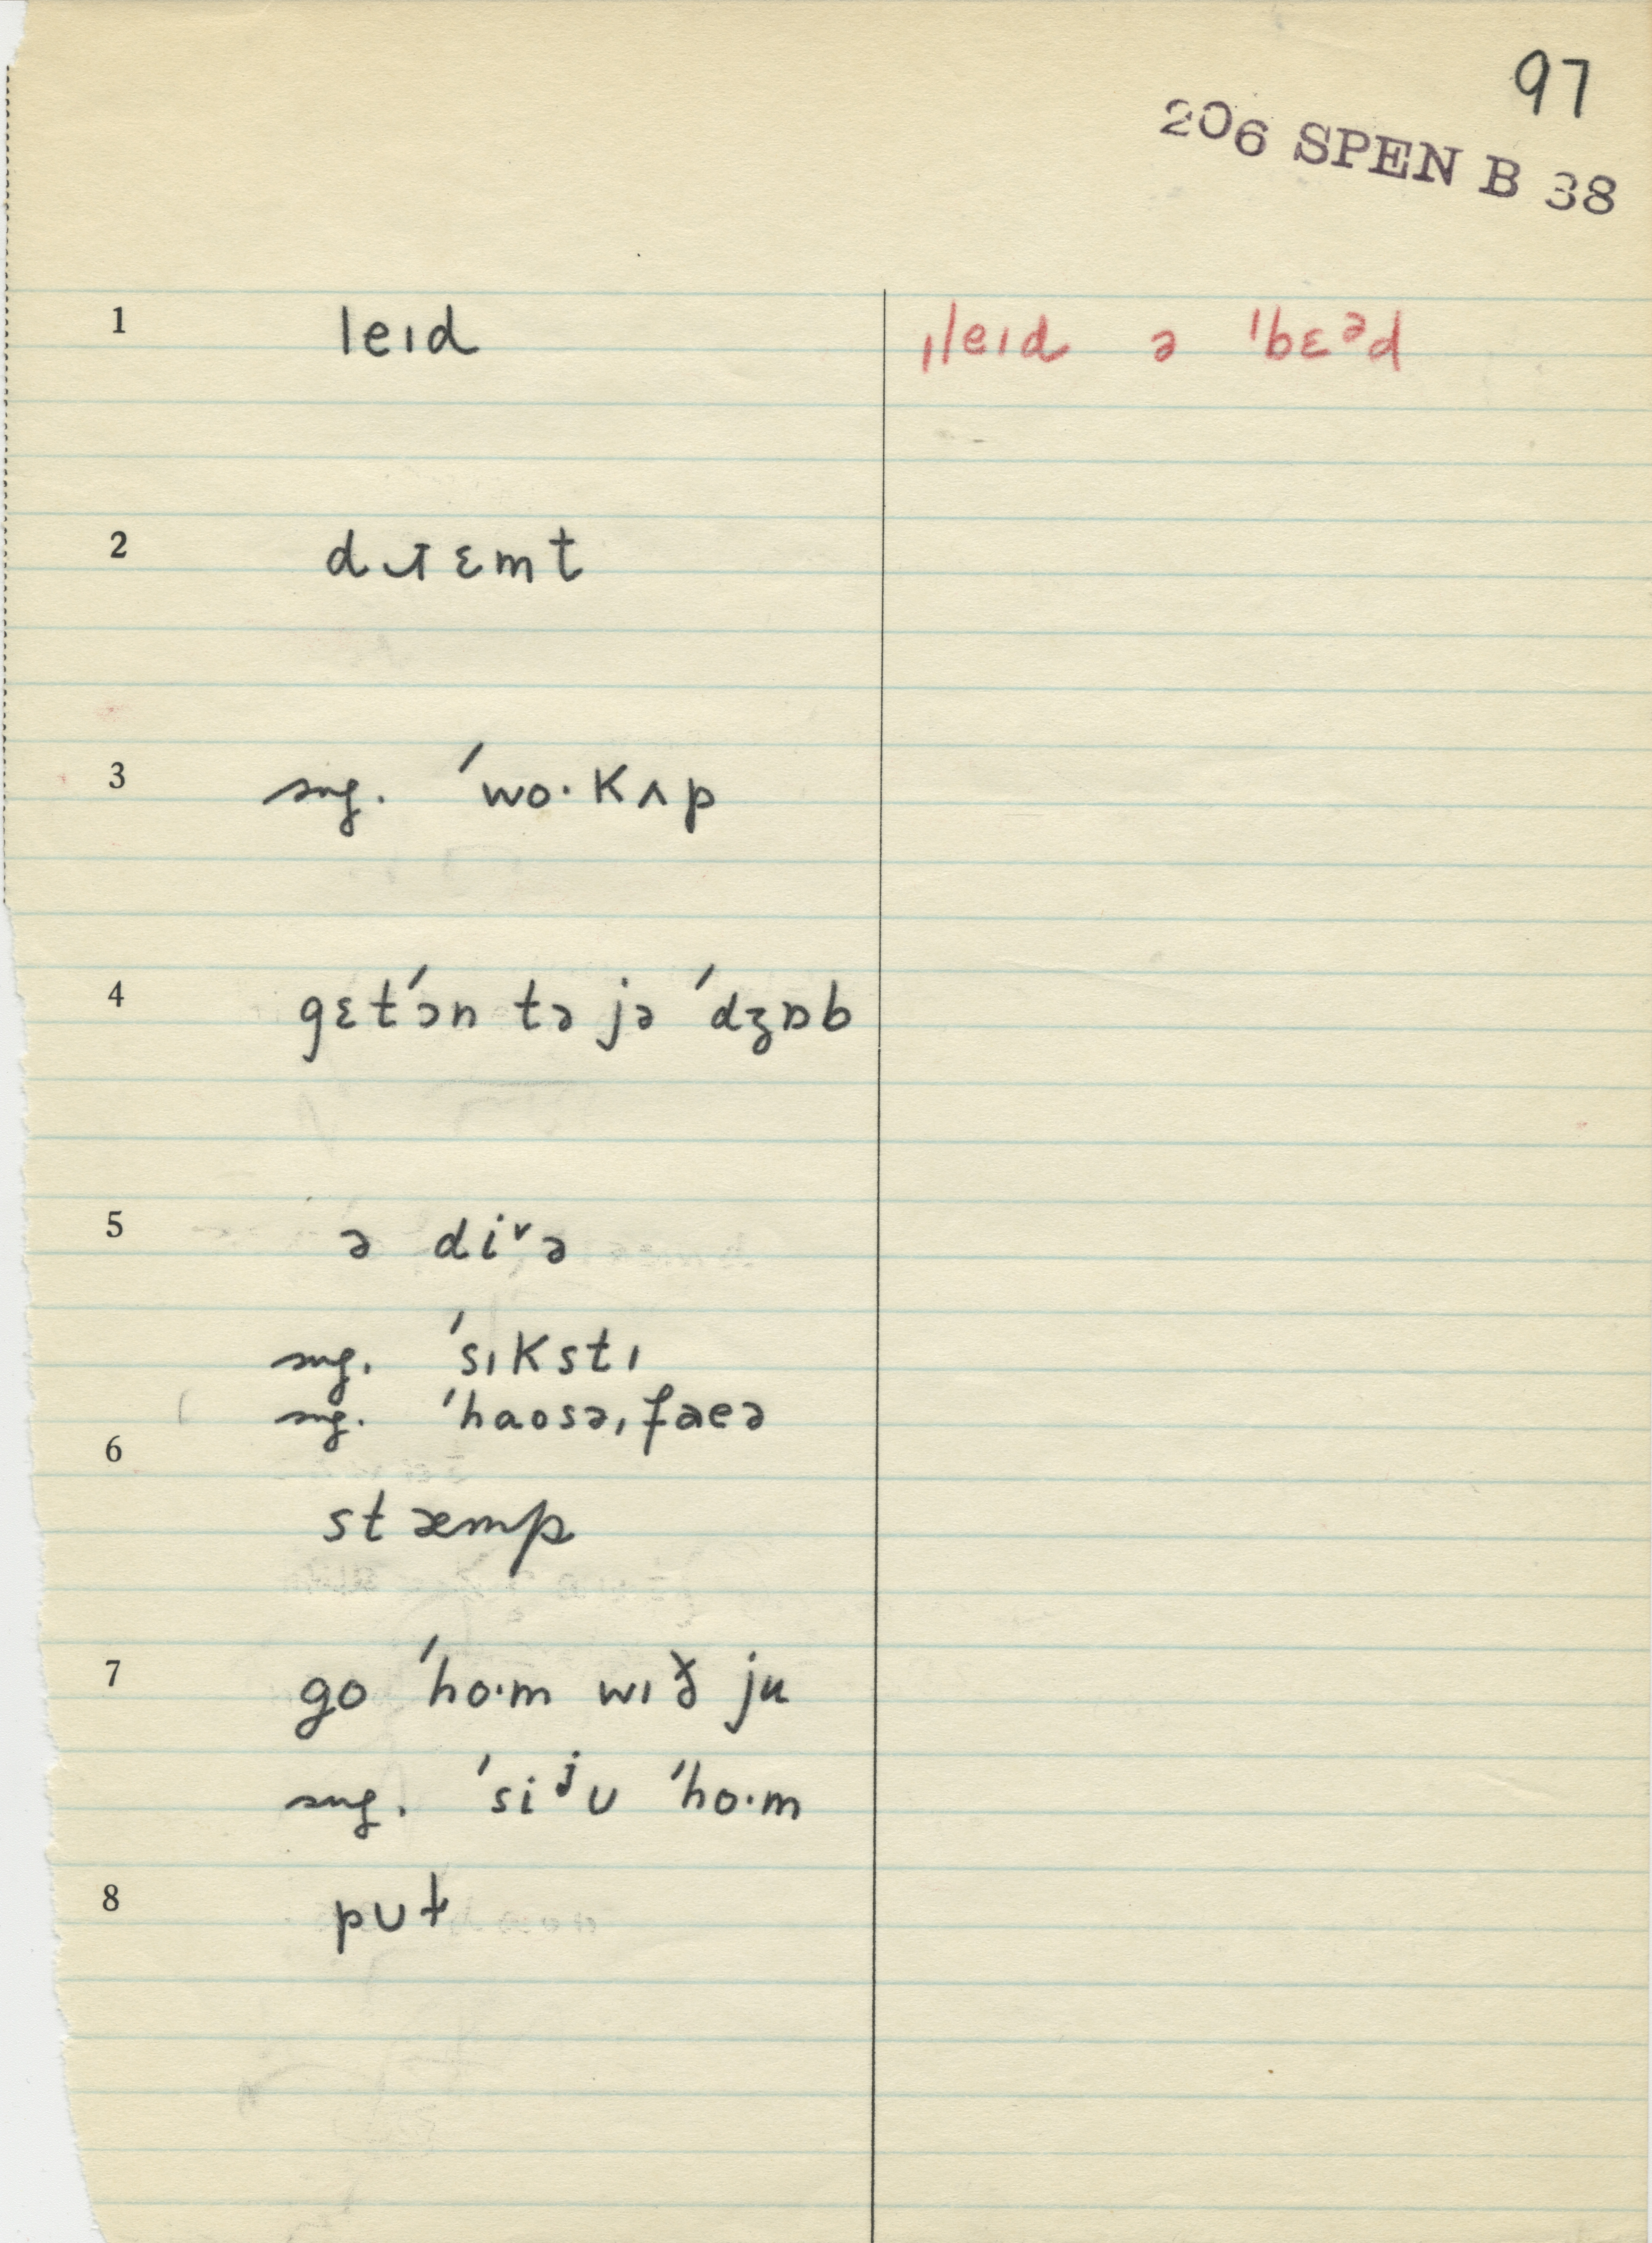 97
206 SPEN B 38
1 leɪd ˌleɪd ə ˈbɛᵊd
2 dɹɛmt
3 sug. ˈwo·kʌp
4 gɛtˈɔn tə jə ˈdʒɒb
5 ə diᵛə
sug. ˈsɪkstɪ
sug. ˈhaosəˌfaeə
6
stæmp
7 go ˈho·m wɪð ju
sug. ˈsiʲʊ ˈho·m
8 pʊt